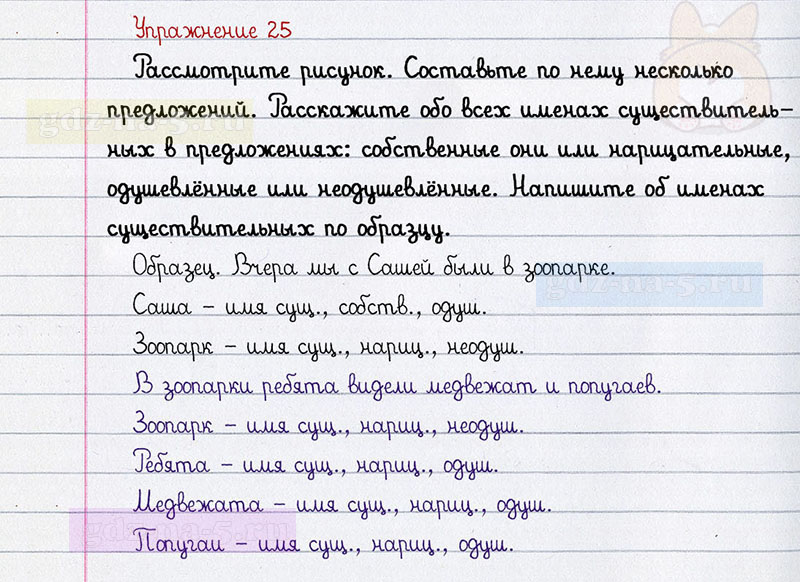 Упражнение 25
Рассмотрите рисунок. Составьте по нему несколько
предложений. Расскажите обо всех именах существитель-
ных в предложениях: собственные они или нарицательные,
одушевлённые или неодушевлённые. Напишите об именах
существительных по образцу.
Образец. Вчера мы с Сашей были в зоопарке.
Саша – имя сущ., собств., одуш.
Зоопарк – имя сущ., нариц., неодуш.
В зоопарки ребята видели медвежат и попугаев.
Зоопарк – имя сущ., нариц., неодуш.
Ребята – имя сущ., нариц., одуш.
Медвежата – имя сущ., нариц., одуш.
Попугаи – имя сущ., нариц., одуш.
gdz-na-5.ru
gdz-na-5.ru
gdz-na-5.ru